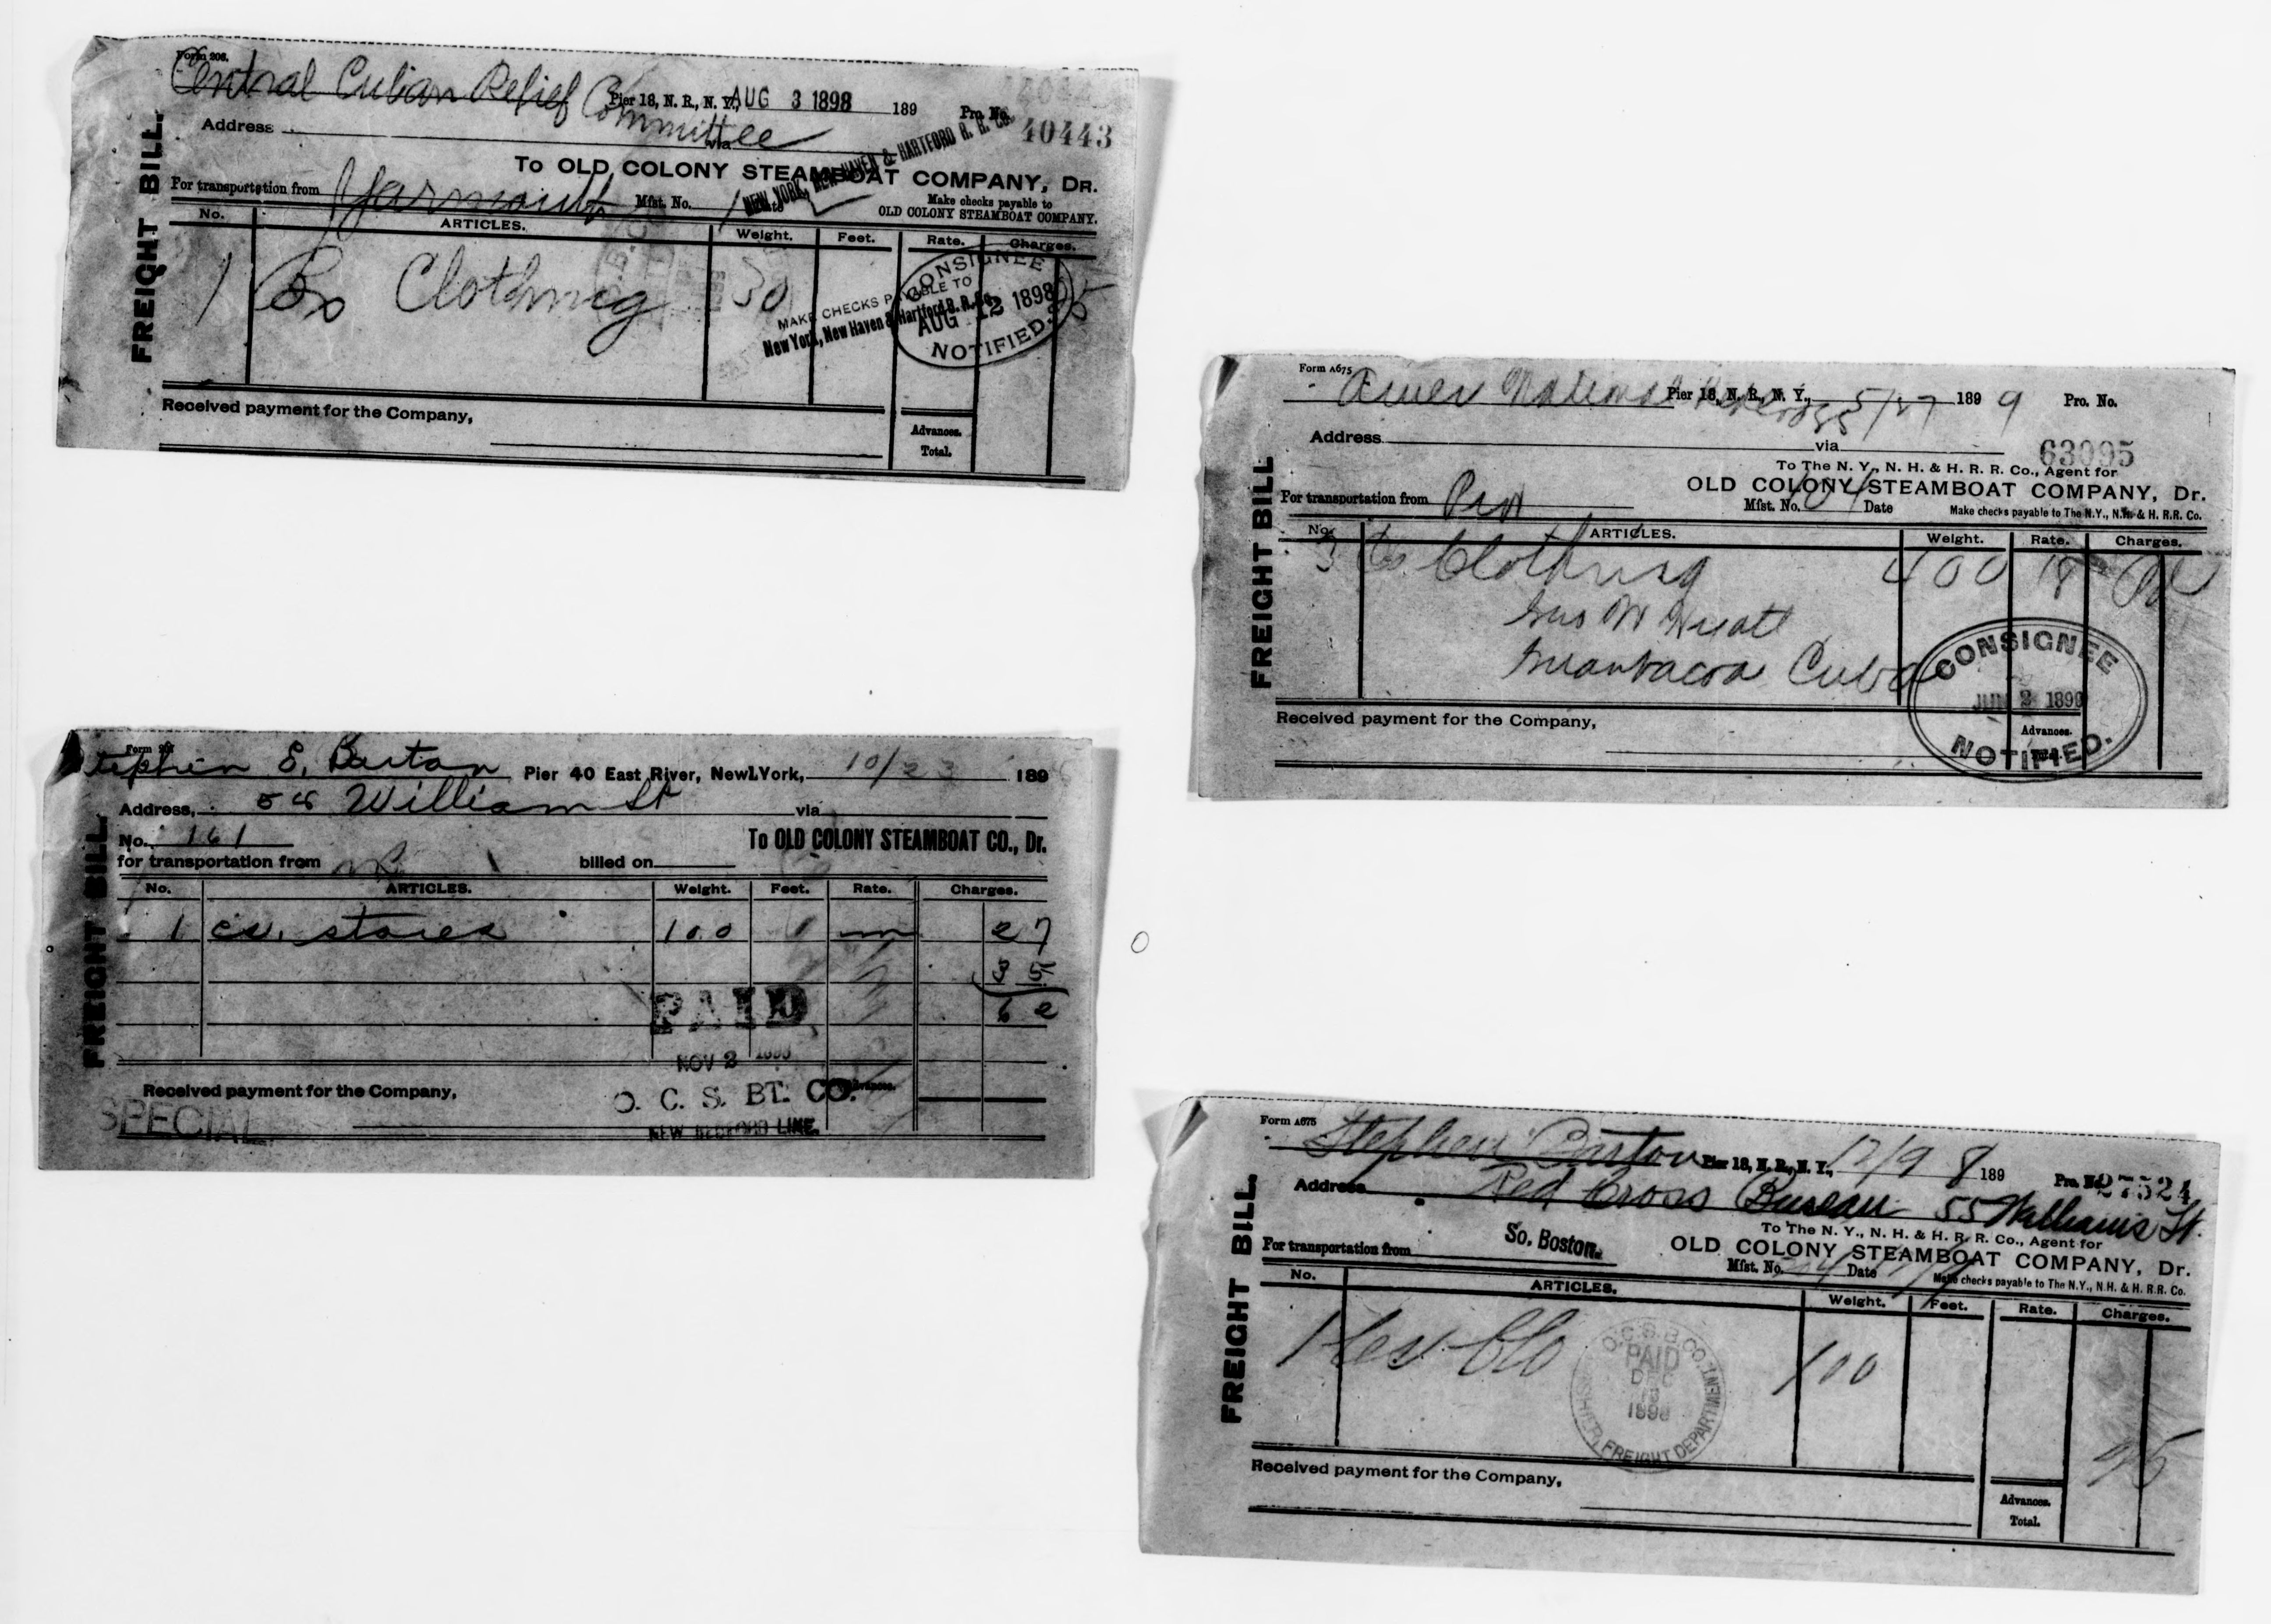 Form 206.
Central Cuban Relief Committee
Pier 18, N. R., N. Y., AUG 3 1898 189 Pro. No. 40443
Address via
NEW YORK, NEW HAVEN & HARTFORD R. R. Co.
To OLD COLONY STEAMBOAT COMPANY, Dr.
For transportation from Yarmouth Mfst. No. 1
Make checks payable to
OLD COLONY STEAMBOAT COMPANY.
FREIGHT BILL.
No. ARTICLES. Weight. Feet. Rate. Charges.
1 Bx Clothing 30 25
MAKE CHECKS PAYABLE TO
New York, New Haven & Hartford R. R. Co.
CONSIGNEE
AUG 12 1898
NOTIFIED.
Received payment for the Company,
Advances.
Total.
Form A675
Amer National Red Cross Pier 18, N. R., N. Y., 5/27 1899 Pro. No.
63095
Address via
To The N. Y., N. H. & H. R. R. Co., Agent for
OLD COLONY STEAMBOAT COMPANY, Dr.
For transportation from Mfst. No. 104 Date
Make checks payable to The N.Y., N.H. & H. R.R. Co.
FREIGHT BILL
No. ARTICLES. Weight. Rate. Charges.
3 Cs Clothing 400 18 Pd
Hyatt
Guanbacoa Cuba
CONSIGNEE
JUN 2 1899
NOTIFIED.
Received payment for the Company,
Advances.
Stephen E. Barton Pier 40 East River, New York, 10/23 189
Address, 58 William St via
No. 161 To OLD COLONY STEAMBOAT CO., Dr.
for transportation from billed on
FREIGHT BILL.
No. ARTICLES. Weight. Feet. Rate. Charges.
1 cs. stores 100 27
35
62
PAID
NOV 2
Received payment for the Company,
O. C. S. BT. CO.
Advances.
SPECIAL
NEW BEDFORD LINE.
Form A675
Stephen Barton Pier 18, N. R., N. Y., 12/9 8 189 Pro. No. 27524
Address Red Cross Bureau 55 Williams St.
To The N. Y., N. H. & H. R. R. Co., Agent for
OLD COLONY STEAMBOAT COMPANY, Dr.
For transportation from So. Boston. Mfst. No. Date
Make checks payable to The N.Y., N.H. & H. R.R. Co.
FREIGHT BILL.
No. ARTICLES. Weight. Feet. Rate. Charges.
1 cs. Clo 100
O. C. S. B. CO.
PAID
DEC
1898
CASHIER, FREIGHT DEPARTMENT
Received payment for the Company,
Advances.
Total.